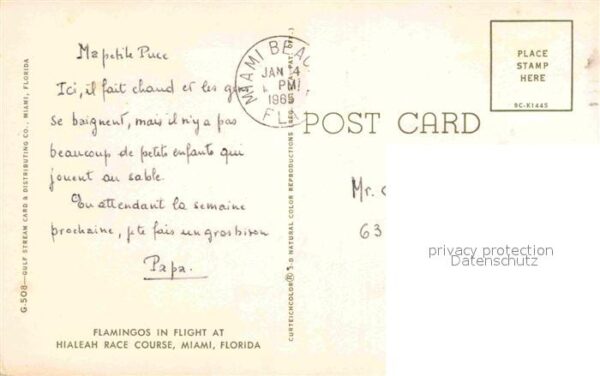 Ma petite Puce
Ici, il fait chaud et les gens
se baignent, mais il n'y a pas
beaucoup de petits enfants qui
jouent au sable.
En attendant la semaine
prochaine, je te fais un gros bison
Papa.
FLAMINGOS IN FLIGHT AT
HIALEAH RACE COURSE, MIAMI, FLORIDA
G-508—GULF STREAM CARD & DISTRIBUTING CO., MIAMI, FLORIDA
CURTEICHCOLOR® 3-D NATURAL COLOR REPRODUCTIONS (REG. U.S.A. PAT. OFF.)
MIAMI BEACH
JAN 4
PM
1965
FLA
POST CARD
PLACE
STAMP
HERE
9C-K1445
Mr.
63
privacy protection
Datenschutz